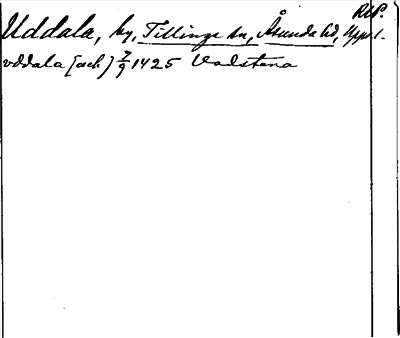 RAP.
Uddala, by, Tillinge sn, Åsunda hd, Uppl.
vddala [ack] 7/9 1425 Vadstena